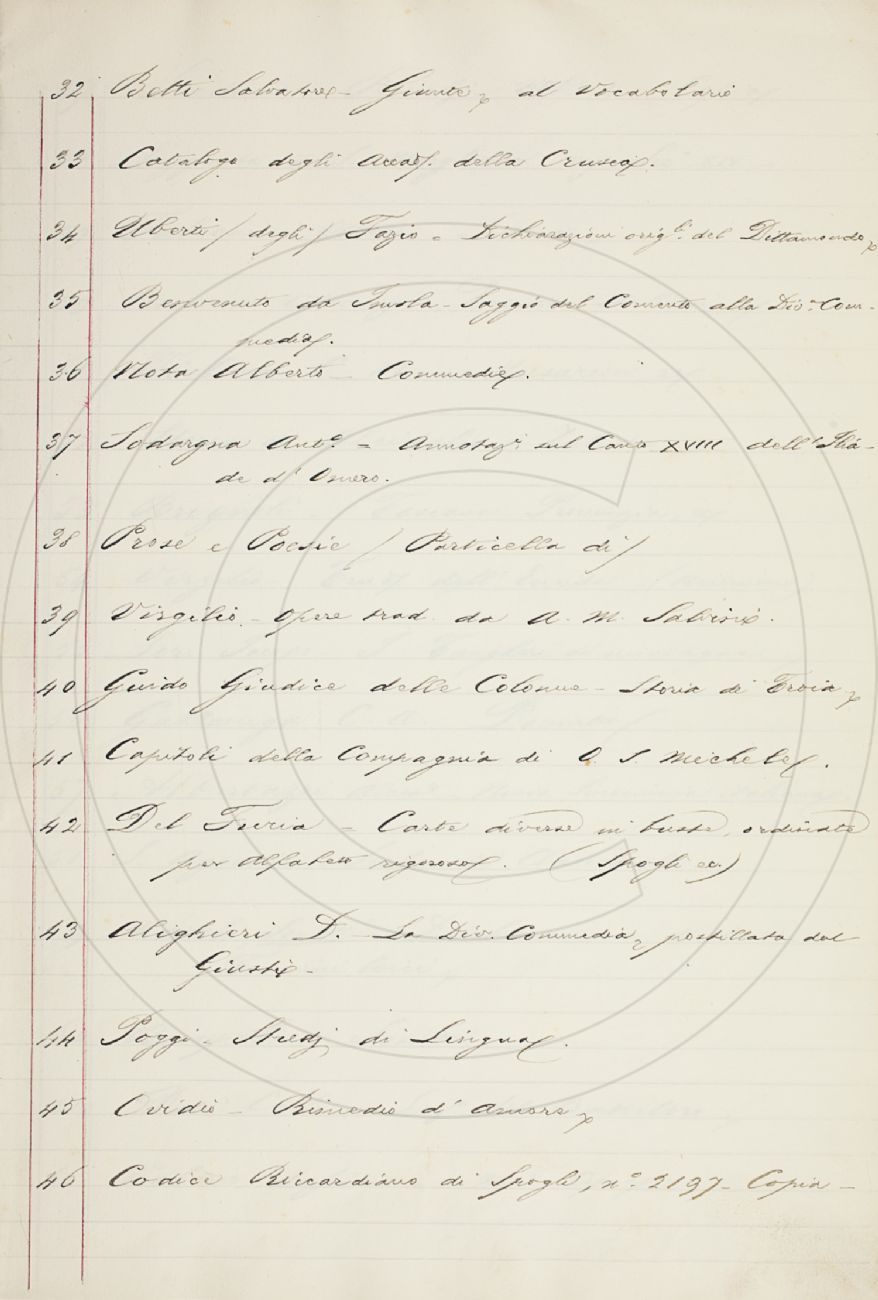 32 Betti Salvatore - Giunte, al Vocabolario
33 Catalogo degli Accad. della Crusca.
34 Uberti (degli) Fazio - Dichiarazioni orig.li del Dittamondo,
35 Benvenuto da Imola - Saggio del Comento alla Div.a Com-
media.
36 Nota Alberto - Commedie.
37 Sodargna Ant.o - Annotaz.i sul Canto XVIII dell'Ilia-
de d'Omero.
38 Prose e Poesie (Particella di)
39 Virgilio - Opere trad. da A. M. Salvini.
40 Guido Giudice delle Colonne - Storia di Troia,
41 Capitoli della Compagnia di O. S. Michele.
42 Del Furia - Carte diverse in buste, ordinate
per alfabeto rigoroso. (Spogli ec.)
43 Alighieri D. - La Div. Commedia, postillata dal
Giusti -
44 Poggi - Studj di Lingua.
45 Ovidio - Rimedio d'amore,
46 Codice Riccardiano di Spogli, n.o 2197 - Copia -